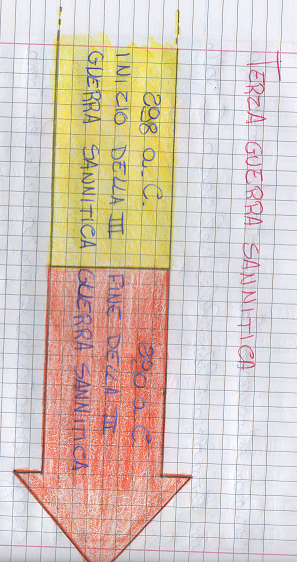 TERZA GUERRA SANNITICA
298 a.C.
INIZIO DELLA III
GUERRA SANNITICA
290 a.C
FINE DELLA III
GUERRA SANNITICA